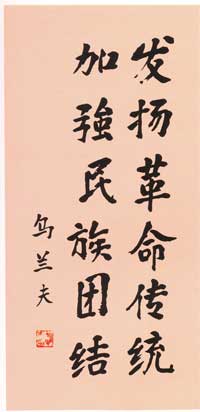 发扬革命传统
加强民族团结
乌兰夫